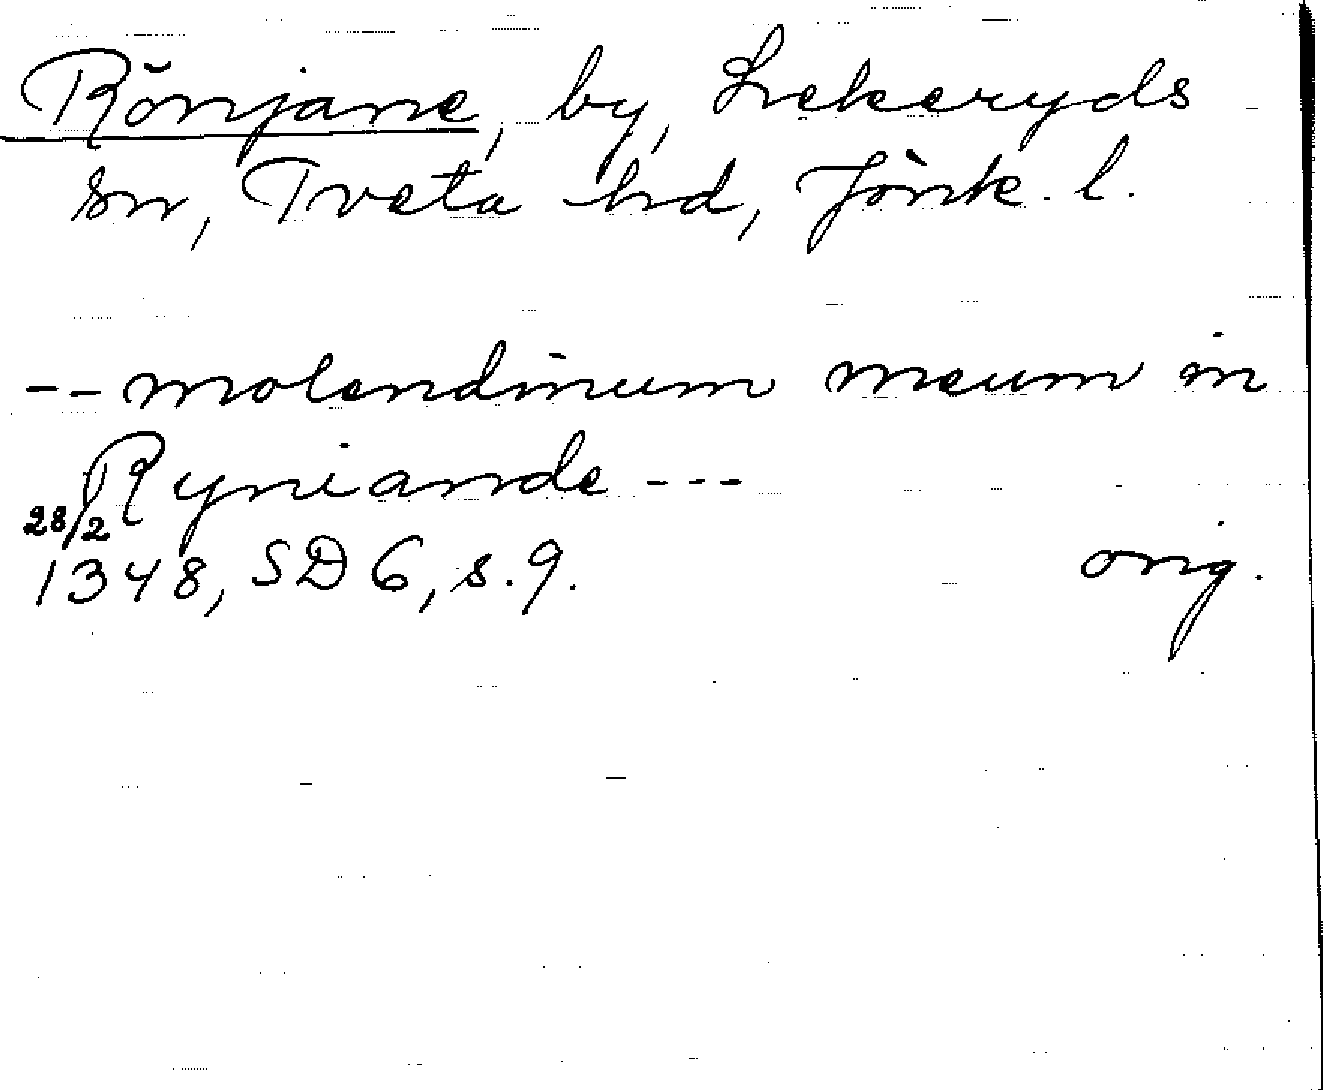 Rönjane, by, Lekeryds
sn, Tveta hd, Jönk. l.
-- molendinum meum in
Ryniande ---
28/2
1348, SD 6, s. 9. orig.